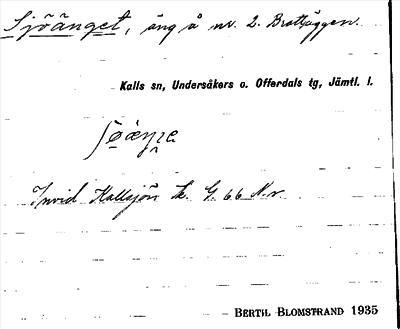 Sjöänget, äng å nr. 2. Brattäggen.
Kalls sn, Undersåkers o. Offerdals tg, Jämtl. l.
Invid Kallsjön k. G. 66 N.v.
BERTIL BLOMSTRAND 1935